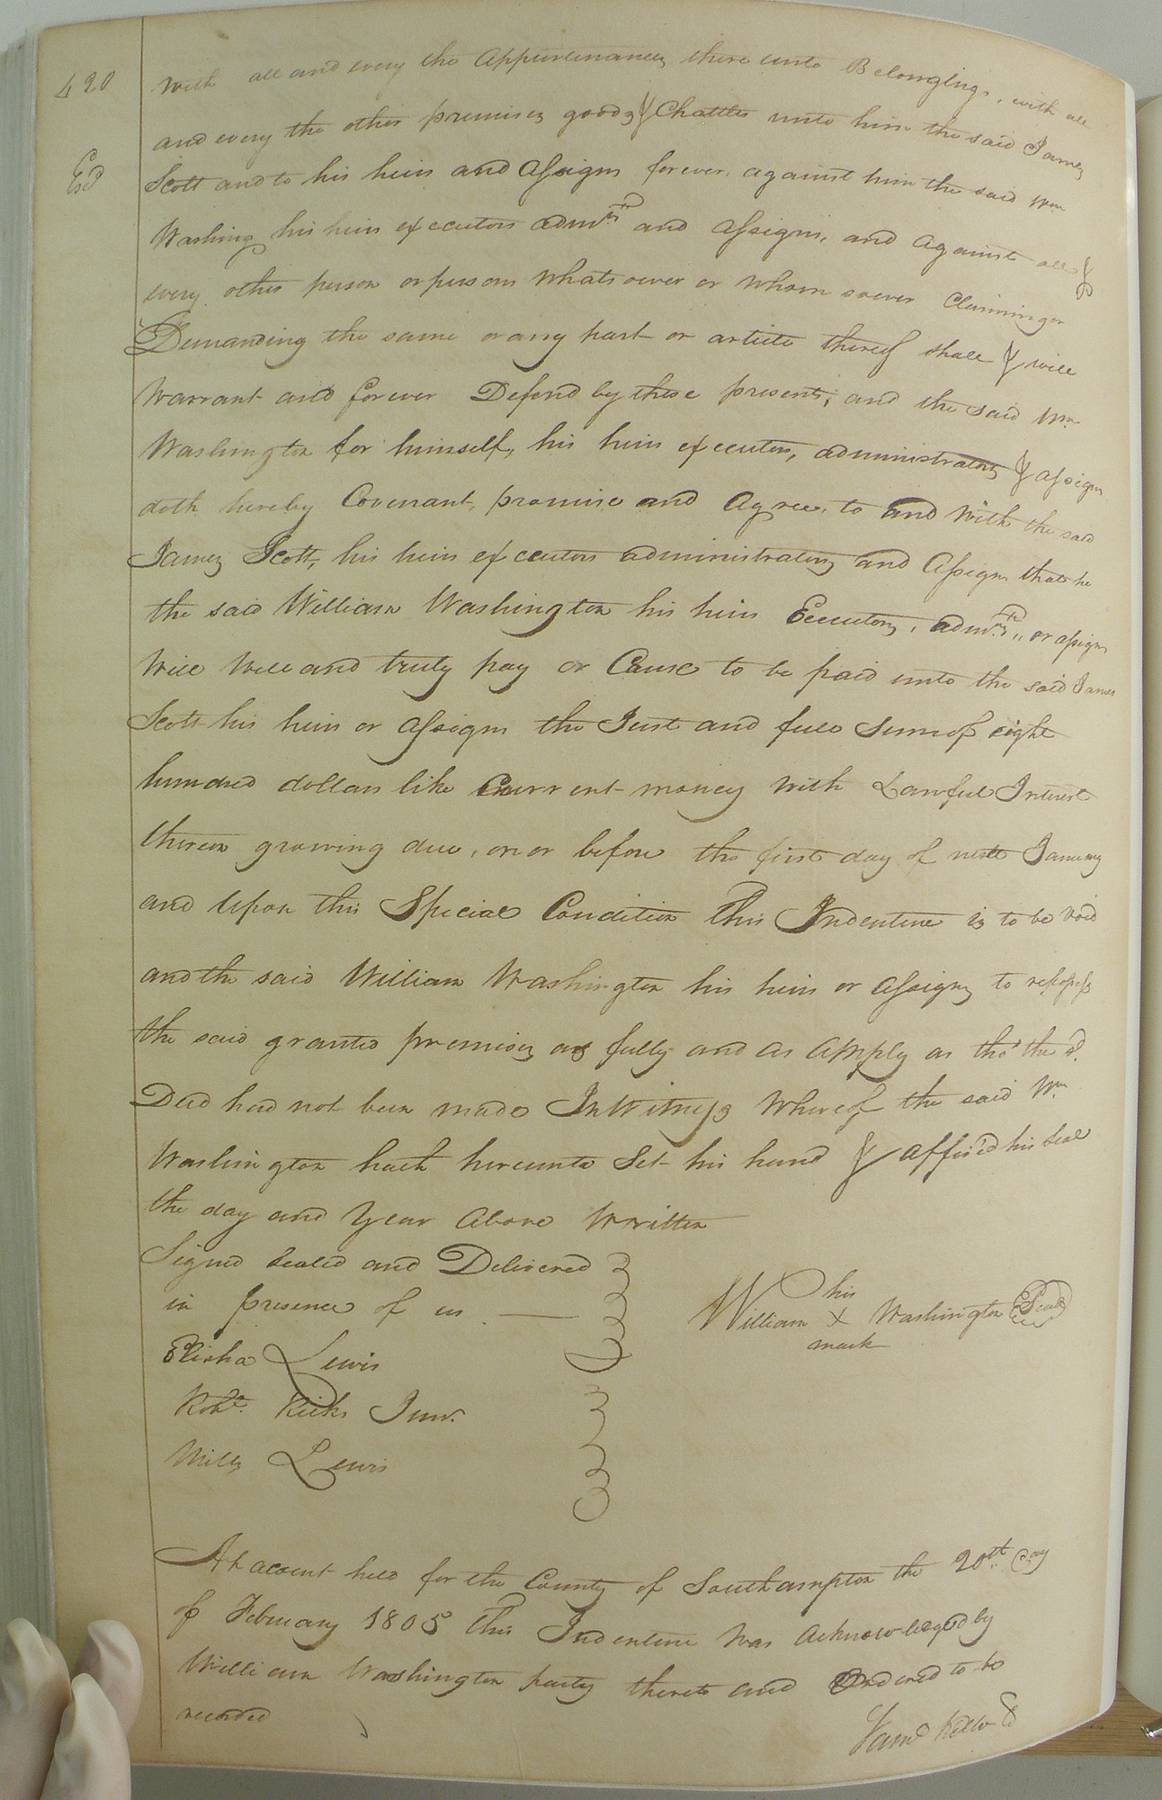 420
with all and every the Appurtenances there unto Belonging, with all
and every the other premises goods & Chattles unto him the said James
Exd
Scott and to his heirs and Assigns forever against him the said Wm
Washing his heirs executors admrs and Assigns, and Against all &
every other person or persons whatsoever or whom soever Claiming or
Demanding the same or any part or article thereof shall & will
Warrant and forever Defend by these presents; and the said Wm
Washington for himself, his heirs executors, administrators & assigns
doth hereby Covenant, promise and Agree, to and with the said
James Scott, his heirs executors administrators and Assigns that he
the said William Washington his heirs Executors, admrs, or assigns
Will Well and truly pay or Cause to be paid unto the said James
Scott his heirs or assigns the Just and full Sum of eight
hundred dollars like Current money with Lawful Interest
thereon growing due, on or before the first day of next January
and Upon this Special Condition This Indenture is to be void
and the said William Washington his heirs or assigns to repossess
the said granted premises as fully and as Amply as tho' the sd.
Deed had not been made In Witness Whereof the said Wm
Washington hath hereunto Set his hand & affixed his Seal
the day and Year Above Written
Signed Sealed and Delivered
in presence of us
his
William X Washington Seal
mark
Elisha Lewis
Robt. Ricks Junr.
Mills Lewis
At a court held for the County of Southampton the 20th day
of February 1805 This Indenture was Acknowledged by
William Washington party thereto and Ordered to be
recorded
Saml Kello